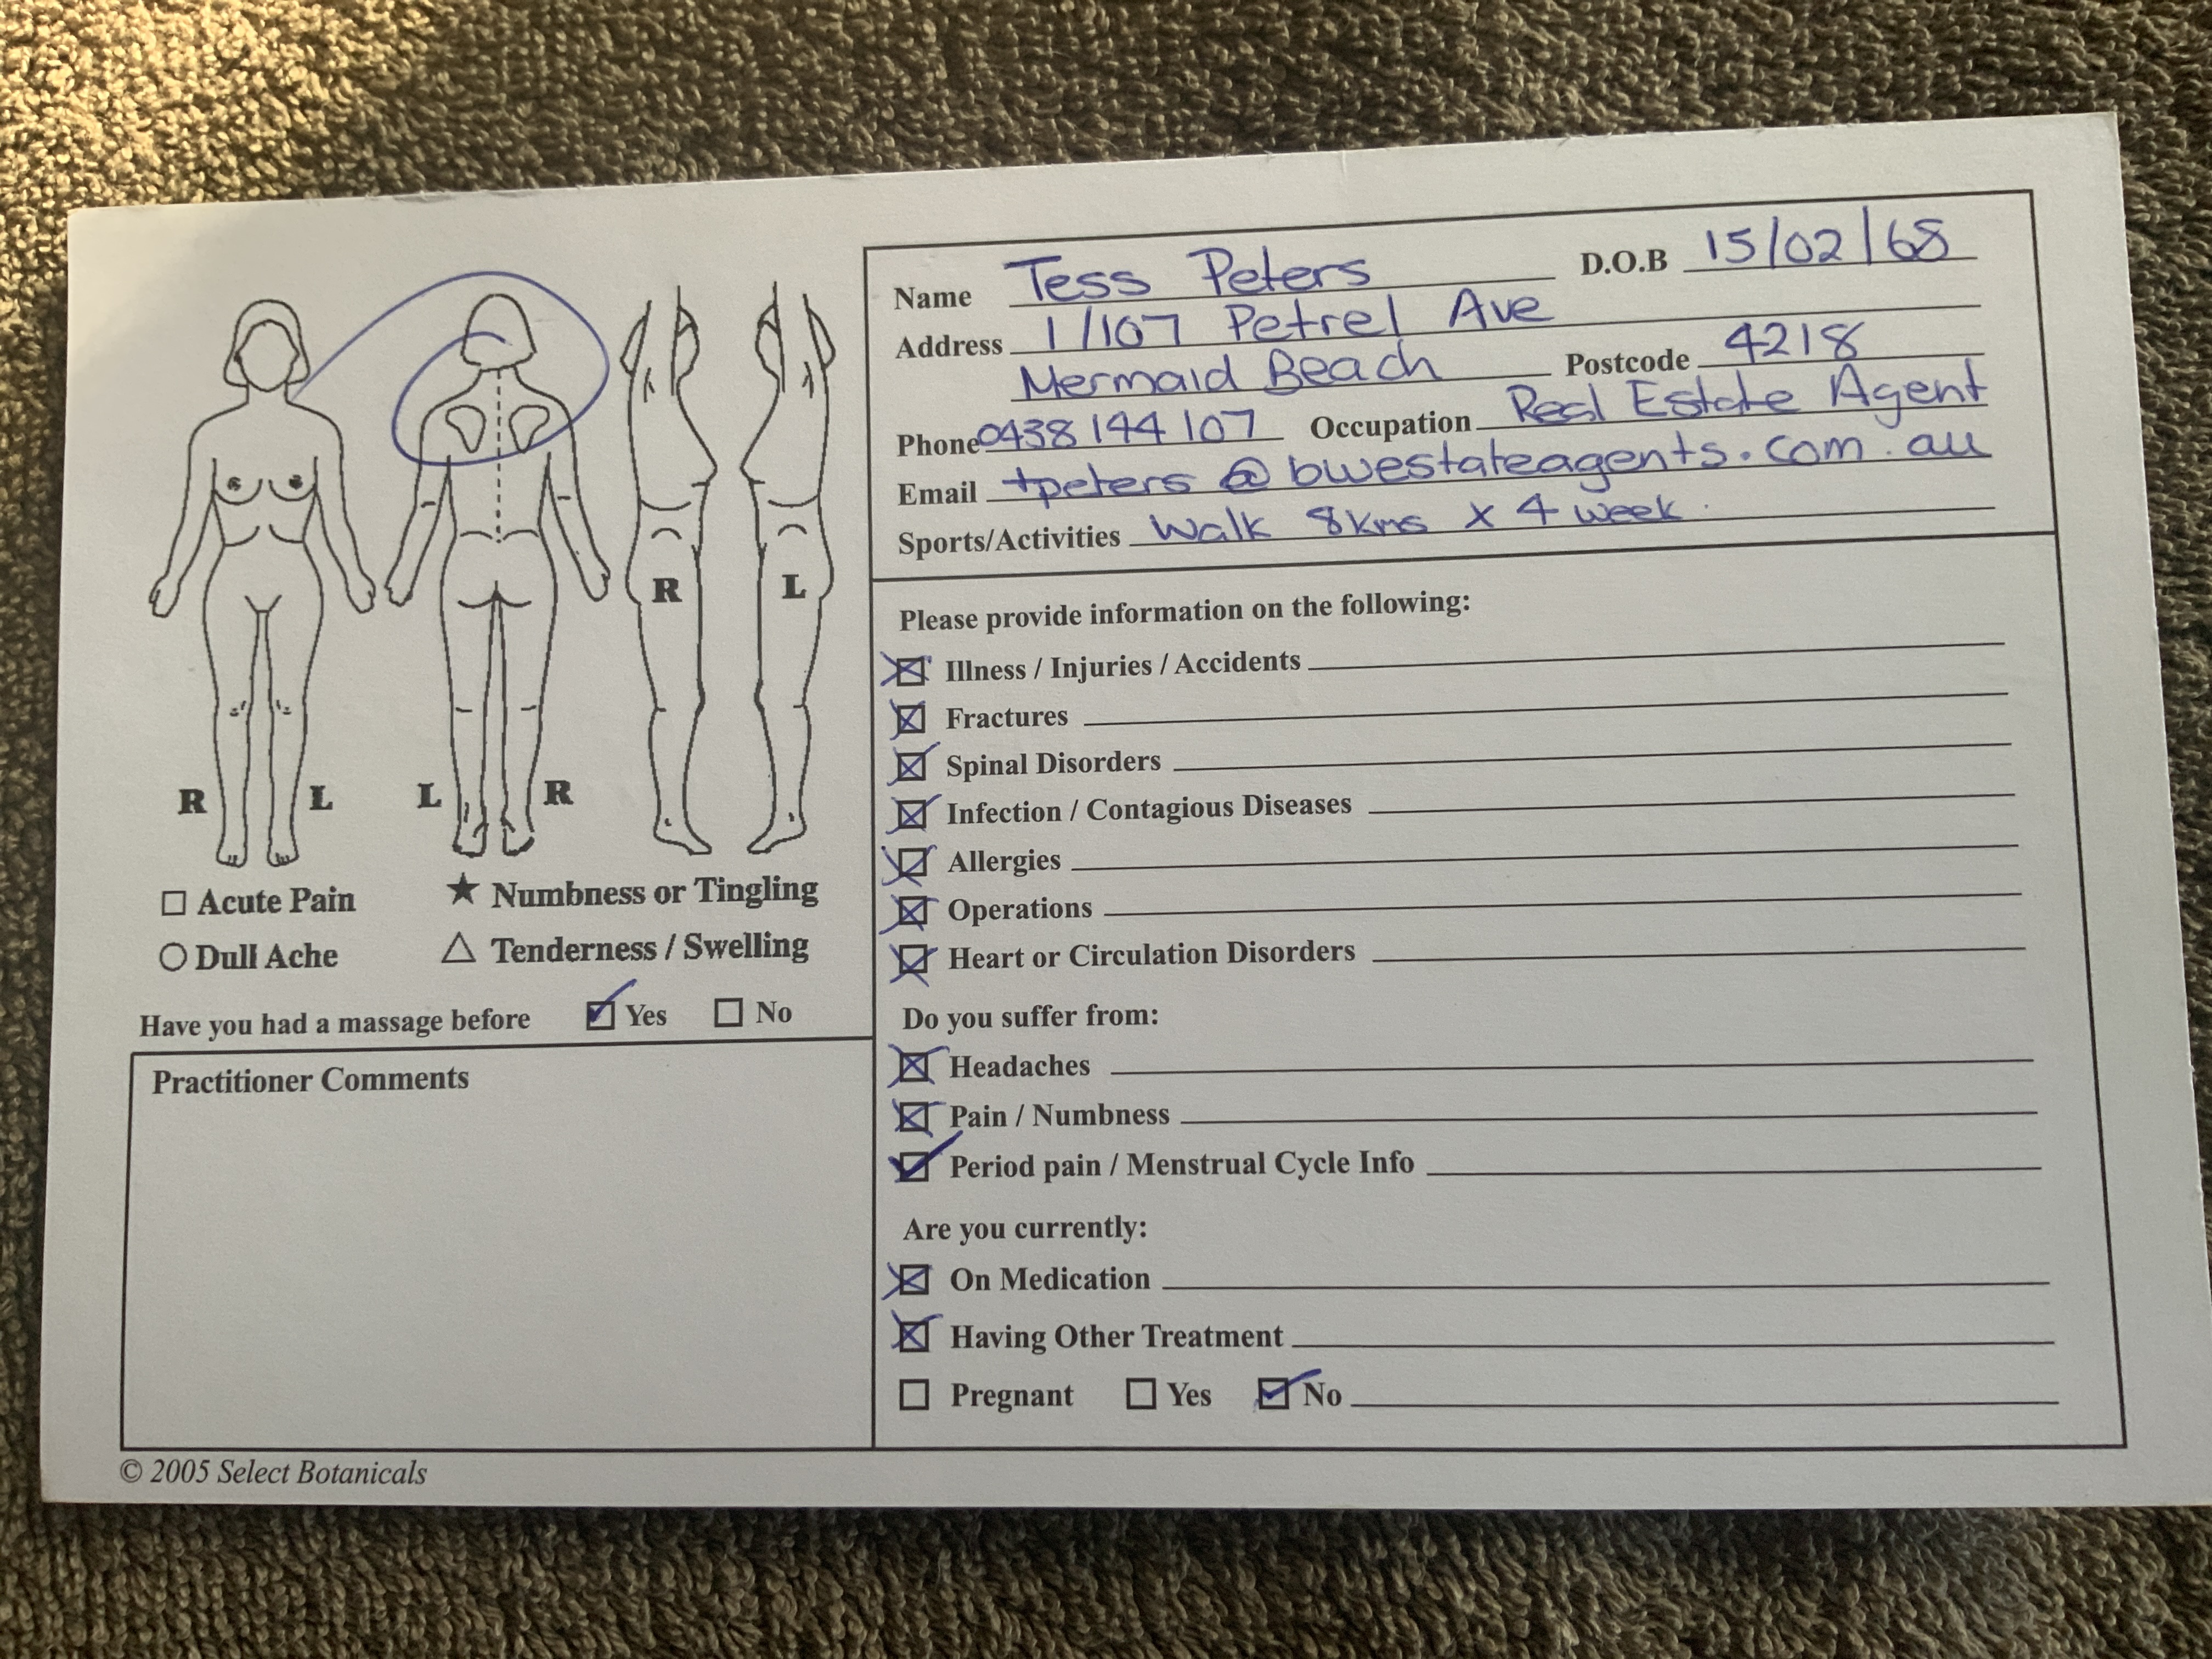 Name Tess Peters D.O.B 15/02/68
Address 1/107 Petrel Ave
Mermaid Beach Postcode 4218
Phone 0438 144 107 Occupation Real Estate Agent
Email tpeters @ bwestateagents.com.au
Sports/Activities Walk 8kms x 4 week.
R L
R L L R
☐ Acute Pain ★ Numbness or Tingling
○ Dull Ache △ Tenderness / Swelling
Have you had a massage before ☑ Yes ☐ No
Practitioner Comments
Please provide information on the following:
☒ Illness / Injuries / Accidents
☒ Fractures
☒ Spinal Disorders
☒ Infection / Contagious Diseases
☒ Allergies
☒ Operations
☒ Heart or Circulation Disorders
Do you suffer from:
☒ Headaches
☒ Pain / Numbness
☑ Period pain / Menstrual Cycle Info
Are you currently:
☒ On Medication
☒ Having Other Treatment
☐ Pregnant ☐ Yes ☑ No
© 2005 Select Botanicals